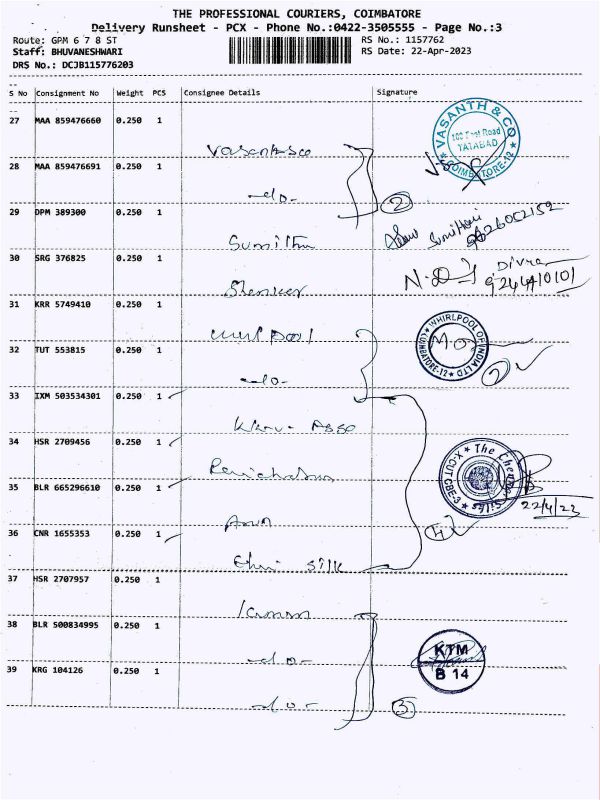 THE PROFESSIONAL COURIERS, COIMBATORE
Delivery Runsheet - PCX - Phone No.:0422-3505555 - Page No.:3
Route: GPM 6 7 8 ST
RS No.: 1157762
Staff: BHUVANESHWARI
RS Date: 22-Apr-2023
DRS No.: DCJB115776203
S No Consignment No Weight PCS Consignee Details Signature
27 MAA 859476660 0.250 1
VASANTH & CO
100 Feet Road
TATABAD
COIMBATORE-12
28 MAA 859476691 0.250 1
-do-
2
29 DPM 389300 0.250 1
Sumithra
30 SRG 376825 0.250 1
N.D
Divya
31 KRR 5749410 0.250 1
WHIRLPOOL OF INDIA LTD
COIMBATORE-12
32 TUT 553815 0.250 1
-do-
2
33 IXM 503534301 0.250 1
34 HSR 2709456 0.250 1
The Chennai Silks
X-CUT CBE-3
35 BLR 665296610 0.250 1
22/4/23
Arun
36 CNR 1655353 0.250 1
4
silk
37 HSR 2707957 0.250 1
38 BLR 500834995 0.250 1
-do-
KTM
B 14
39 KRG 104126 0.250 1
-do-
3